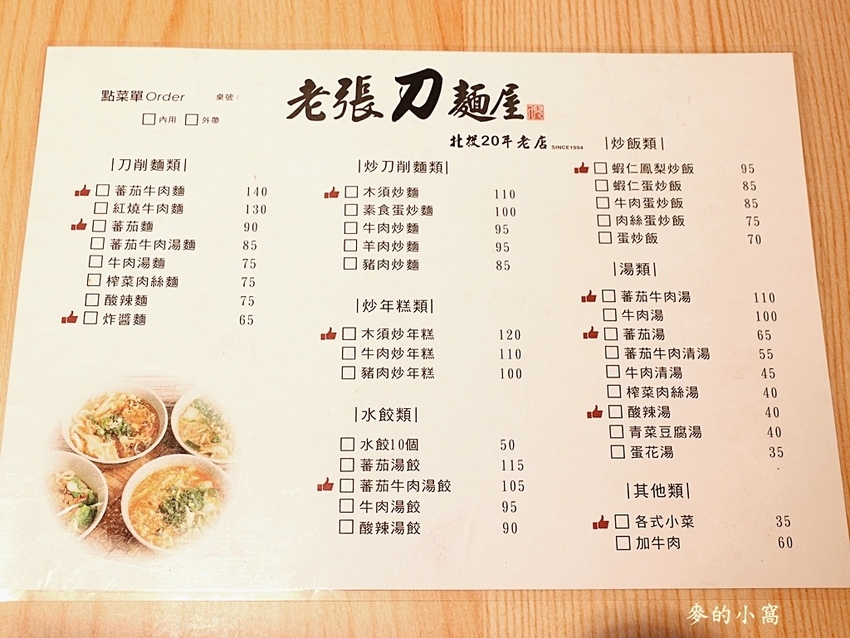 點菜單 Order 桌號：
內用 外帶
老張刀麵屋
北投20年老店 SINCE1994
|刀削麵類|
蕃茄牛肉麵 140
紅燒牛肉麵 130
蕃茄麵 90
蕃茄牛肉湯麵 85
牛肉湯麵 75
榨菜肉絲麵 75
酸辣麵 75
炸醬麵 65
|炒刀削麵類|
木須炒麵 110
素食蛋炒麵 100
牛肉炒麵 95
羊肉炒麵 95
豬肉炒麵 85
|炒年糕類|
木須炒年糕 120
牛肉炒年糕 110
豬肉炒年糕 100
|水餃類|
水餃10個 50
蕃茄湯餃 115
蕃茄牛肉湯餃 105
牛肉湯餃 95
酸辣湯餃 90
|炒飯類|
蝦仁鳳梨炒飯 95
蝦仁蛋炒飯 85
牛肉蛋炒飯 85
肉絲蛋炒飯 75
蛋炒飯 70
|湯類|
蕃茄牛肉湯 110
牛肉湯 100
蕃茄湯 65
蕃茄牛肉清湯 55
牛肉清湯 45
榨菜肉絲湯 40
酸辣湯 40
青菜豆腐湯 40
蛋花湯 35
|其他類|
各式小菜 35
加牛肉 60
麥的小窩